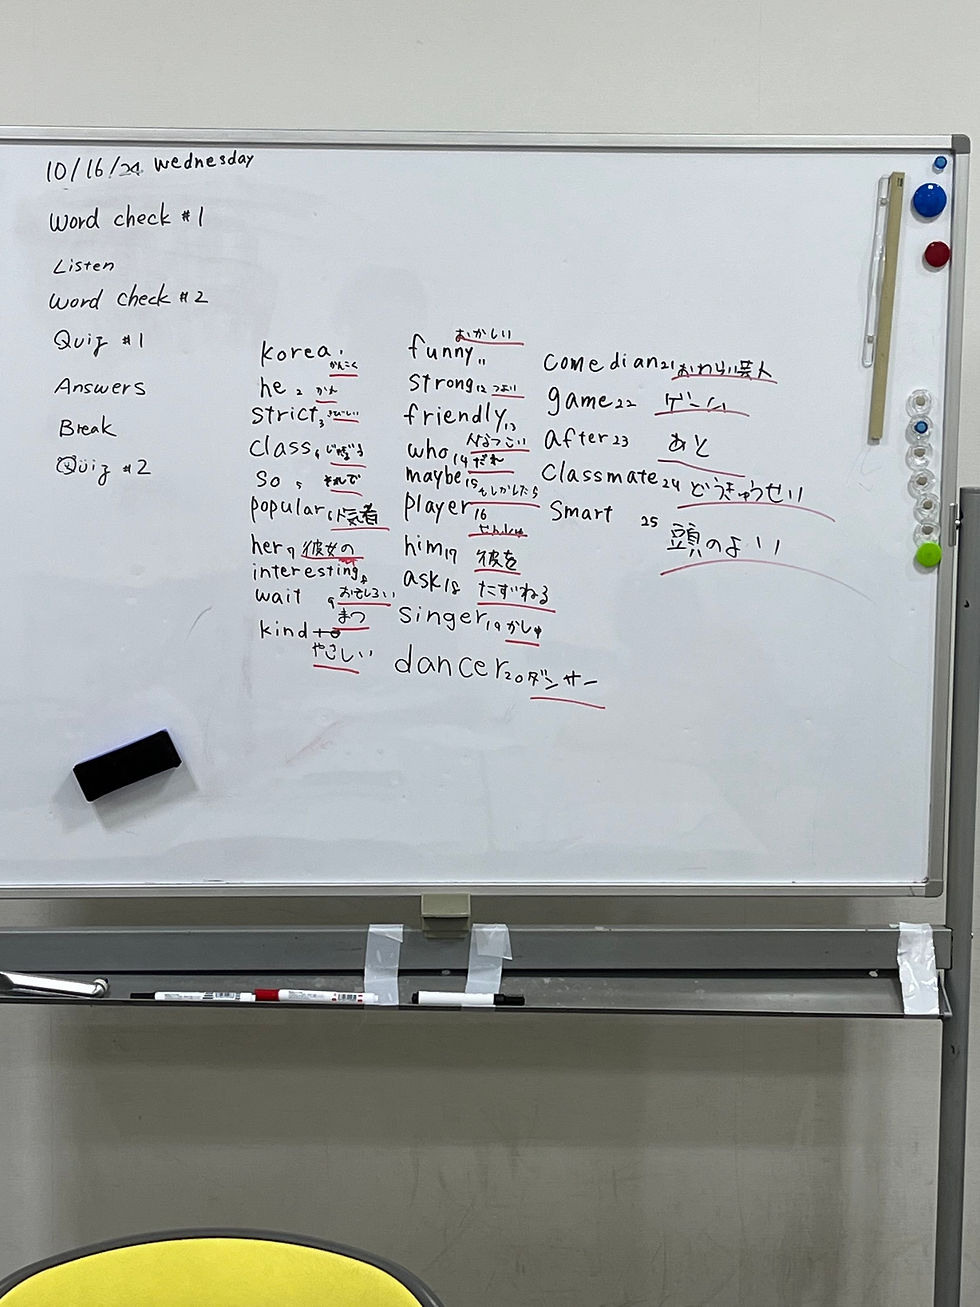 10/16/24 Wednesday
Word check #1
Listen
Word check #2
Quiz #1
Answers
Break
Quiz #2
korea 1
かんこく
he 2 かれ
strict 3 きびしい
class 4 じゅぎょう
so 5 それで
popular 6 人気者
her 7 彼女の
interesting 8
おもしろい
wait 9
まつ
kind 10
やさしい
おかしい
funny 11
strong 12 つよい
friendly 13
人なつこい
who 14 だれ
maybe 15 もしかしたら
player 16
せんしゅ
him 17 彼を
ask 18 たずねる
singer 19 かしゅ
dancer 20 ダンサー
comedian 21 おわらい芸人
game 22 ゲーム
after 23 あと
classmate 24 どうきゅうせい
smart 25 頭のよい